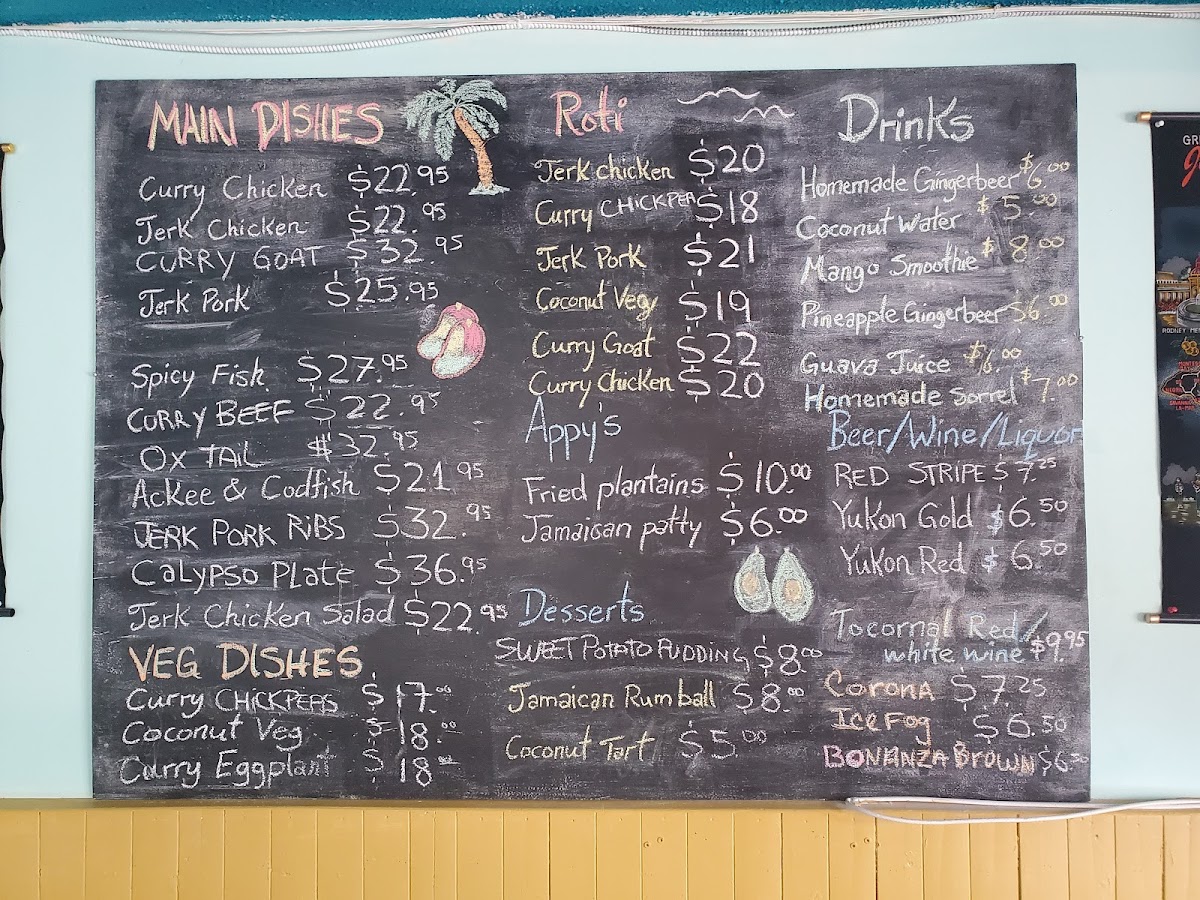 MAIN DISHES
Curry Chicken $22.95
Jerk Chicken $22.95
CURRY GOAT $32.95
Jerk Pork $25.95
Spicy Fish $27.95
CURRY BEEF $22.95
OX TAIL $32.95
Ackee & Codfish $21.95
JERK PORK RiBS $32.95
CALYPSO PLATE $36.95
Jerk Chicken Salad $22.95
VEG DISHES
Curry CHICKPEAS $17.00
Coconut Veg $18.00
Curry Eggplant $18.00
Roti
Jerk chicken $20
Curry CHICKPEA $18
Jerk Pork $21
Coconut Vegy $19
Curry Goat $22
Curry Chicken $20
Appy's
Fried plantains $10.00
Jamaican patty $6.00
Desserts
SWEET POTATO PUDDING $8.00
Jamaican Rum ball $8.00
Coconut Tart $5.00
Drinks
Homemade Gingerbeer $6.00
Coconut Water $5.00
Mango Smoothie $8.00
Pineapple Gingerbeer $6.00
Guava Juice $6.00
Homemade Sorrel $7.00
Beer/Wine/Liquor
RED STRIPE $7.25
Yukon Gold $6.50
Yukon Red $6.50
Tocornal Red/
white wine $9.95
Corona $7.25
Ice Fog $6.50
BONANZA BROWN $6.50